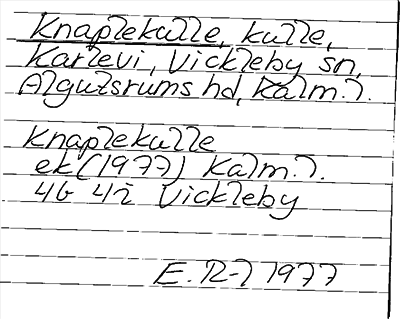 Knaplekulle, kulle,
Karlevi, Vickleby sn,
Algutsrums hd, Kalm. l.
Knaplekulle
ek (1977) Kalm. l.
4G 4i Vickleby
1977